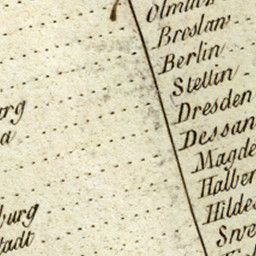 Olmütz
Breslaw
Berlin
Stettin
Dresden
Dessau
Magde
Halber
Hildes
urg
a
burg
tadt